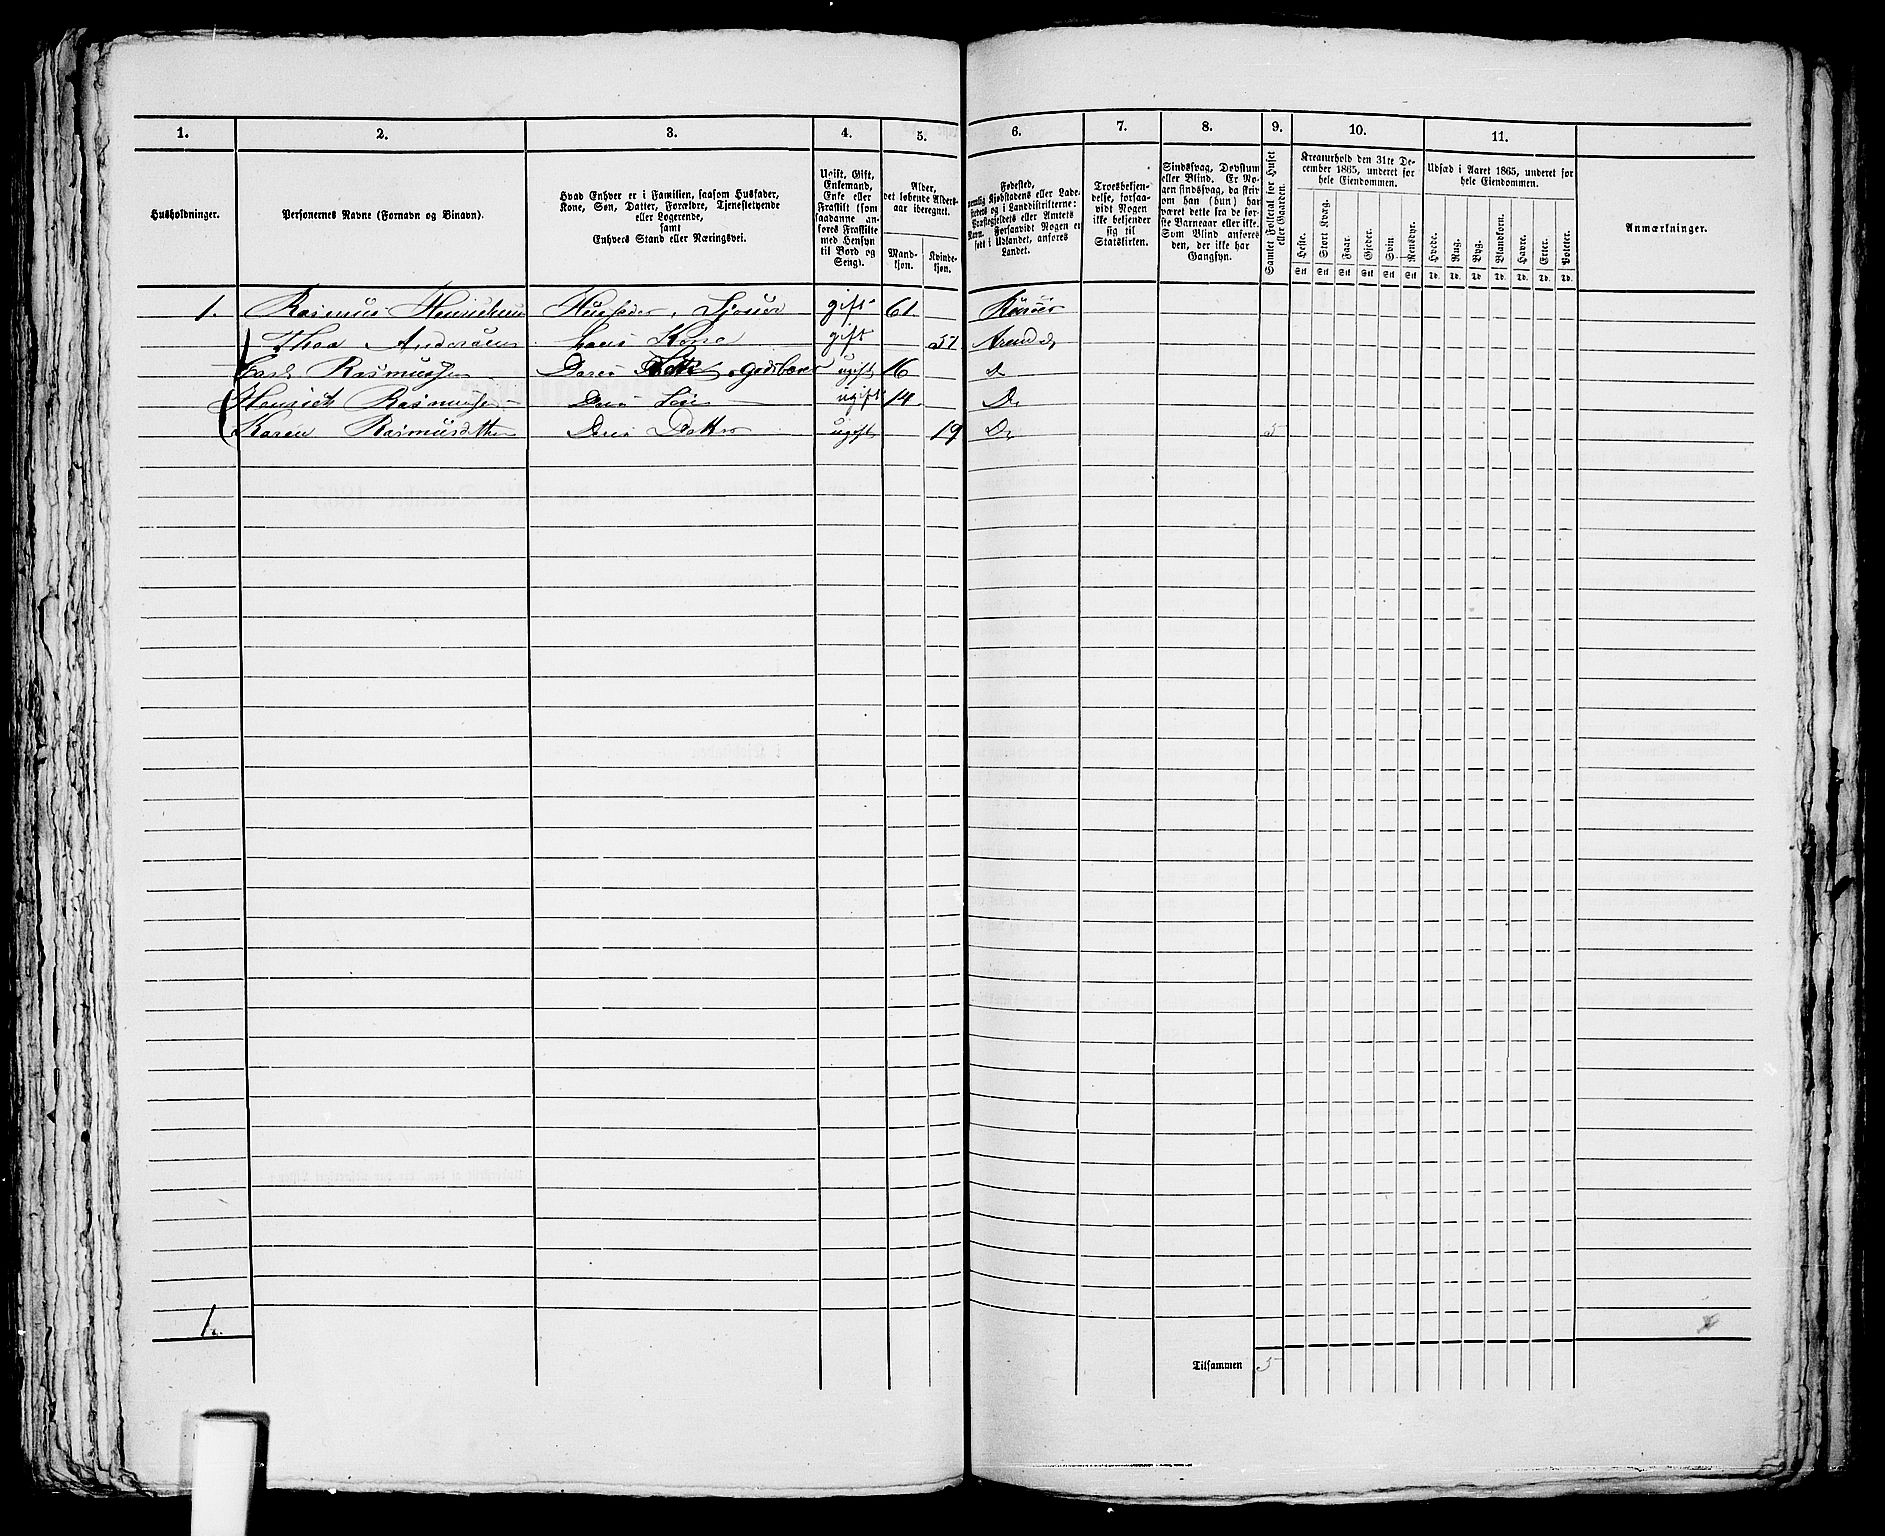 1. 2. 3. 4. 5. 6. 7. 8. 9. 10. 11.
Husholdninger.
Personernes Navne (Fornavn og Binavn).
Hvad Enhver er i Familien, saasom Husfader,
Kone, Søn, Datter, Forældre, Tjenestetyende
eller Logerende,
samt
Enhvers Stand eller Næringsvei.
Ugift, Gift,
Enkemand,
Enke eller
Fraskilt (som
saadanne an-
føres Fraskilte
med Hensyn
til Bord og
Seng).
Alder,
det løbende Alders-
aar iberegnet.
Mand-
kjøn.
Kvinde-
kjøn.
Fødested,
nemlig Kjøbstadens eller Lade-
stedets og i Landdistrikterne:
Præstegjeldets eller Amtets
Navn. Forsaavidt Nogen er
født i Udlandet, anføres
Landet.
Troesbekjen-
delse, forsaa-
vidt Nogen
ikke bekjender
sig til
Statskirken.
Sindssvag, Døvstum
eller Blind. Er No-
gen sindssvag, da skriv
om han (hun) har
været dette fra de før-
ste Barneaar eller ikke.
Som Blind anføres
den, der ikke har
Gangsyn.
Samlet Folketal for Huset
eller Gaarden.
Kreaturhold den 31te De-
cember 1865, underet for
hele Eiendommen.
Heste. Stort Kvæg. Faar. Gjeder. Svin. Rensdyr.
Stk Stk Stk Stk Stk Stk
Udsæd i Aaret 1865, underet for
hele Eiendommen.
Hvede. Rug. Byg. Blandkorn. Havre. Erter. Poteter.
Td. Td. Td. Td. Td. Td. Td.
Anmærkninger.
1. Rasmus Husfader, gift 61
Andersen Kone gift 57 Arendal
Rasmussen ugift 16
Henrich Rasmussen Deres Søn ugift 14 Do
Karen Deres Datter ugift 19 Do 5
1.
Tilsammen 5